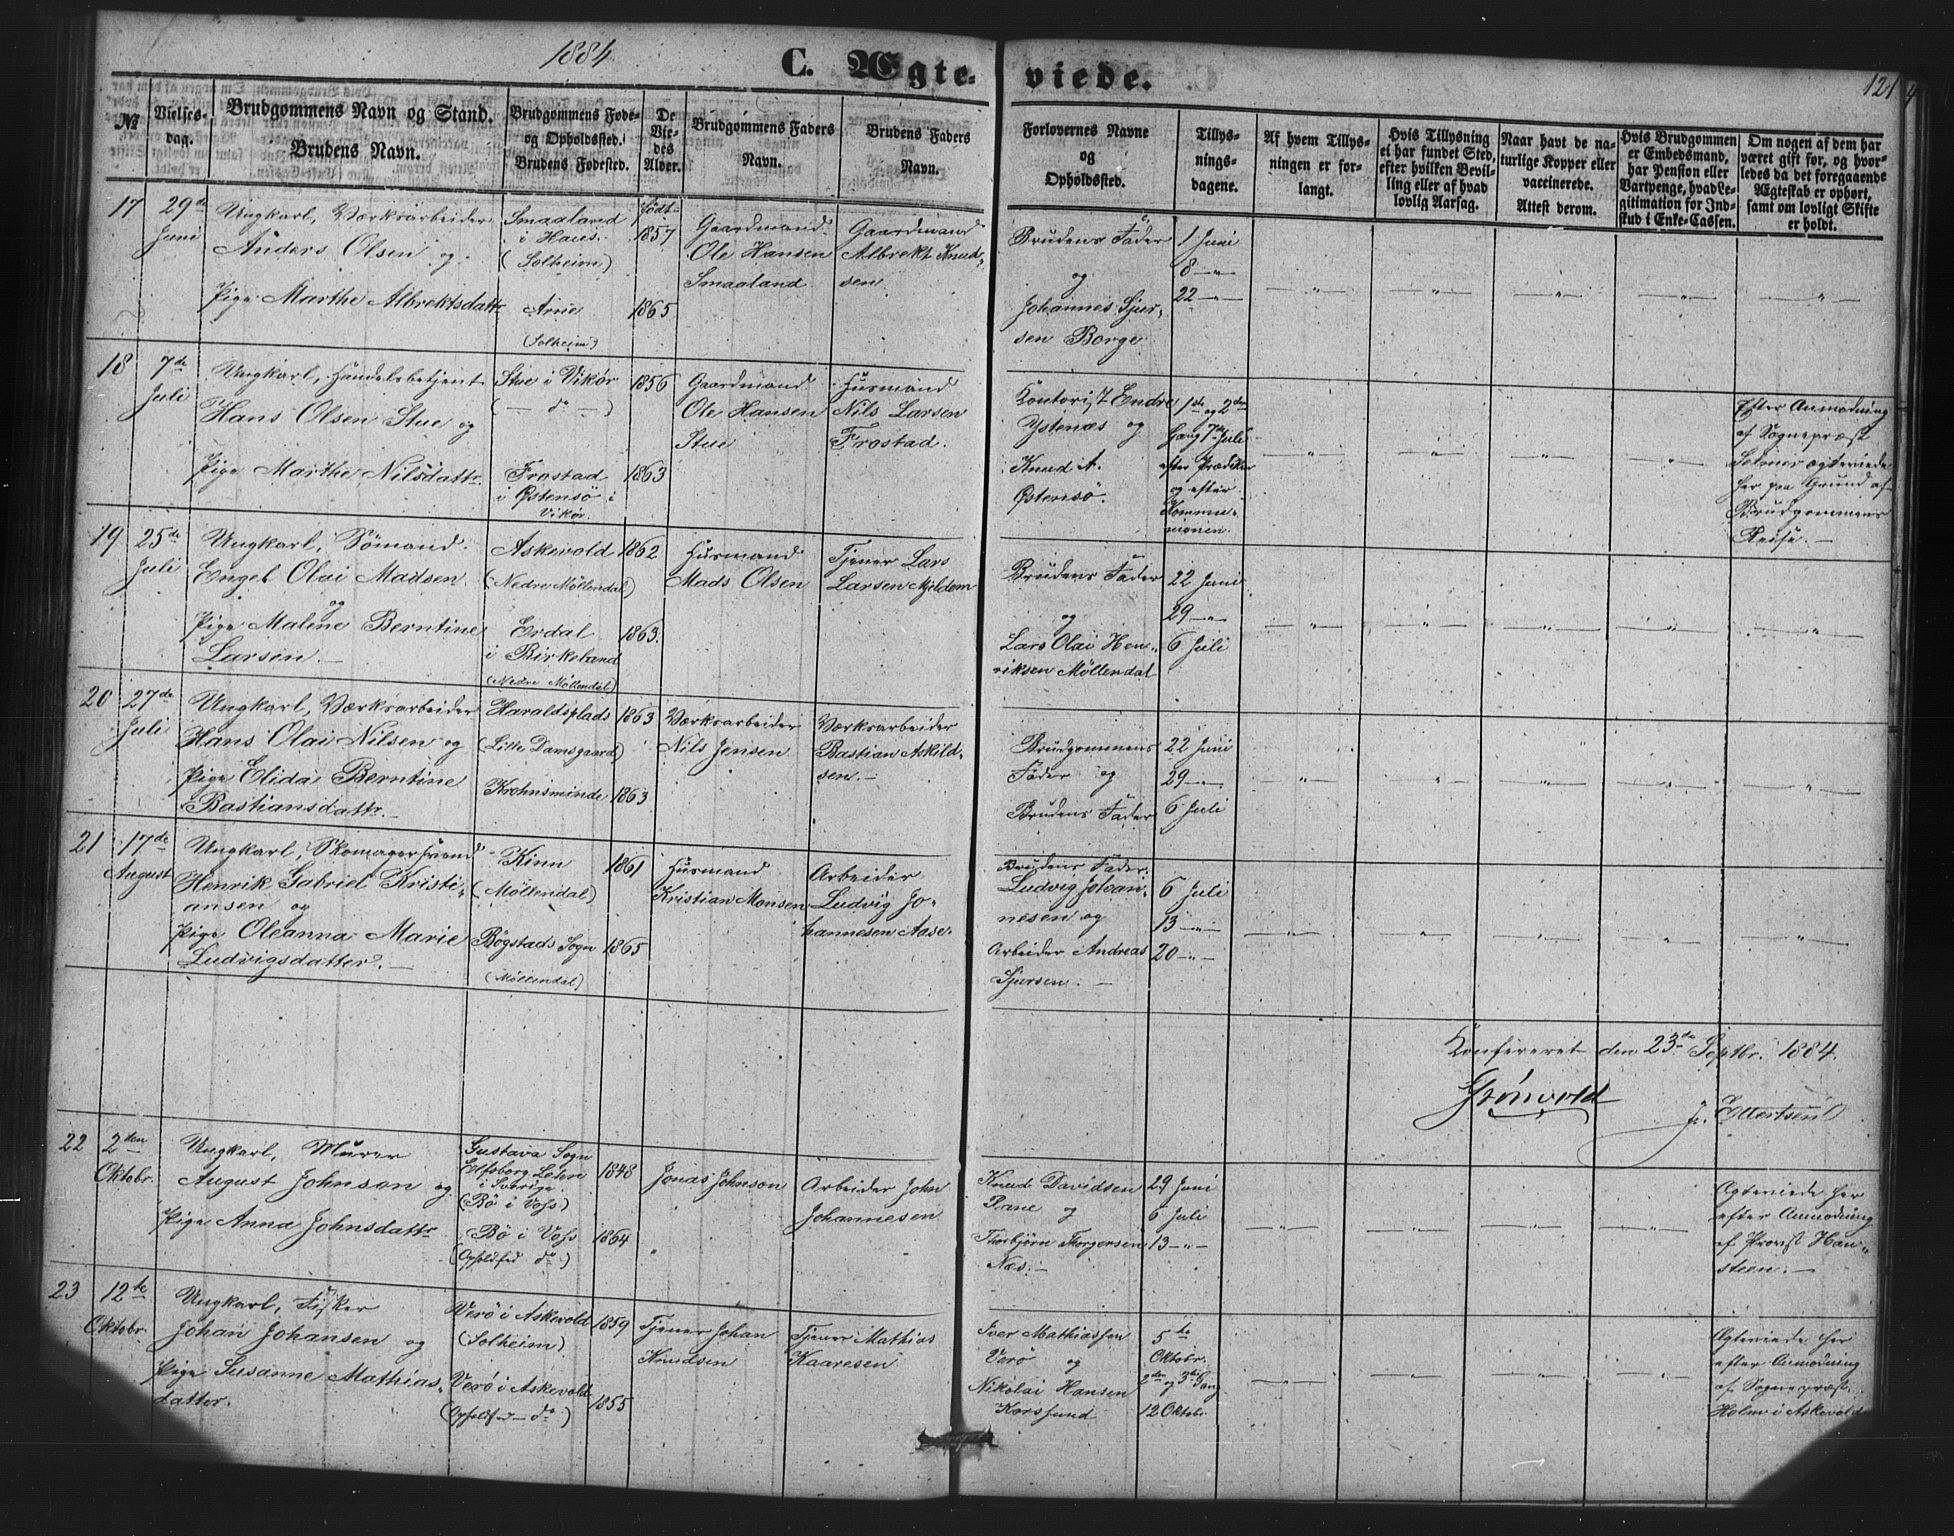 1884
C. Ægte-viede.
121
№
Vielses-dag.
Brudgommens Navn og Stand.
Brudens Navn.
Brudgommens Føde-
og Opholdssted.
Brudens Fødested.
De
Vie-
des
Alder.
Brudgommens Faders
Navn.
Brudens Faders
Navn.
Forlovernes Navne
og
Opholdssted.
Tillys-
nings-
dagene.
Af hvem Tillys-
ningen er for-
langt.
Hvis Tillysning
ei har fundet Sted,
efter hvilken Bevil-
ling eller af hvad
lovlig Aarsag.
Naar havt de na-
turlige Kopper eller
vaccinerede.
Attest derom.
Hvis Brudgommen
er Embedsmand,
har Pension eller
Vartpenge, hvad Le-
gitimation for Ind-
skud i Enke-Cassen.
Om nogen af dem har
været gift før, og hvor-
ledes da det foregaaende
Ægteskab er ophørt,
samt om lovligt Skifte
er holdt.
17
29de
Juni
Ungkarl, Værksarbeider
Anders Olsen og
Pige Marthe Albrektsdattr
Smaaland
i Haus.
(Solheim)
Arne
(Solheim)
født
1857
1865
Gaardmand
Ole Hansen
Smaaland
Gaardmand
Albrekt Knud-
sen
Brudens Fader
og
Johannes Sjur-
sen Borge
1 Juni
8 - " -
22 - " -
18
7de
Juli
Ungkarl, Handelsbetjent
Hans Olsen Stue og
Pige Marthe Nilsdattr
Stue i Vikør
( — do — )
Frostad
i Østensö i
Vikør.
1856
1863
Gaardmand
Ole Hansen
Stue
Husmand
Nils Larsen
Frostad.
Kontorist Endre
Ystenæs og
Knud A.
Østensö.
1ste og 2den
Gang 7de Juli
efter Prædiken
og efter
Kommu-
nionen.
Efter Anmodning
af Sognepræst
Selmer ægteviede
her paa Grund af
Brudgommens
Reise. —
19
25de
Juli
Ungkarl, Sömand
Engel Olai Madsen
og
Pige Malene Berntine
Larsen. —
Askevold
(Nedre Møllendal)
Erdal
i Birkeland
(Nedre Møllendal)
1862
1863.
Husmand
Mads Olsen
Tjener Lars
Larsen Mjeldem
Brudens Fader
og
Lars Olai Hen-
riksen Møllendal
22 Juni
29 - " -
6 Juli
20
27de
Juli
Ungkarl, Værksarbeider
Hans Olai Nilsen og
Pige Elida Berntine
Bastiansdattr. —
Haraldsplads
(Lille Damsgaard)
Krohnsminde
1863
1863
Værksarbeider
Nils Jensen
Værksarbeider
Bastian Askild-
sen. —
Brudgommens
Fader og
Brudens Fader
22 Juni
29 - " -
6 Juli
21
17de
August
Ungkarl, Skomagersvend
Henrik Gabriel Kristi-
ansen og
Pige Oleanna Marie
Ludvigsdatter. —
Kinn
(Møllendal)
Bögstads Sogn
(Møllendal)
1861
1865
Husmand
Kristian Monsen
Arbeider
Ludvig Jo-
hannesen Aase.
Brudens Fader
Ludvig Johan-
nesen og
Arbeider Andreas
Sjursen. —
6 Juli
13 - " -
20 - " -
Konfereret den 23de Septbr. 1884.
Grönvold
J. Ellertsen
22
2den
Oktobr.
Ungkarl, Murer
August Johnson og
Pige Anna Johnsdattr
Gustava Sogn
Elfsborg Lehn
i Sverige.
(Bö i Voss)
Bö i Voss
(Opholdssted do)
1848
1864
Jonas Johnson
Arbeider John
Johannesen
Knud Davidsen
Rane og
Thorbjörn Thorgersen
Næs. —
29 Juni
6 Juli
13 - " -
Ægteviede her
efter Anmodning
af Provst Han-
steen. —
23
12te
Oktobr.
Ungkarl, Fisker
Johan Johansen og
Pige Susanne Mathias-
datter.
Verö i Askevold
(Solheim)
Verö i Askevold
(Opholdssted — do)
1859
1855
Tjener Johan
Knudsen
Tjener Mathias
Kaaresen
Iver Mathiassen
Verö og
Nikolai Hansen
Korssund
5te
Oktobr.
2den og 3die Gang
12 Oktobr.
Ægteviede her
efter Anmodning
af Sognepræst
Holm i Askevold